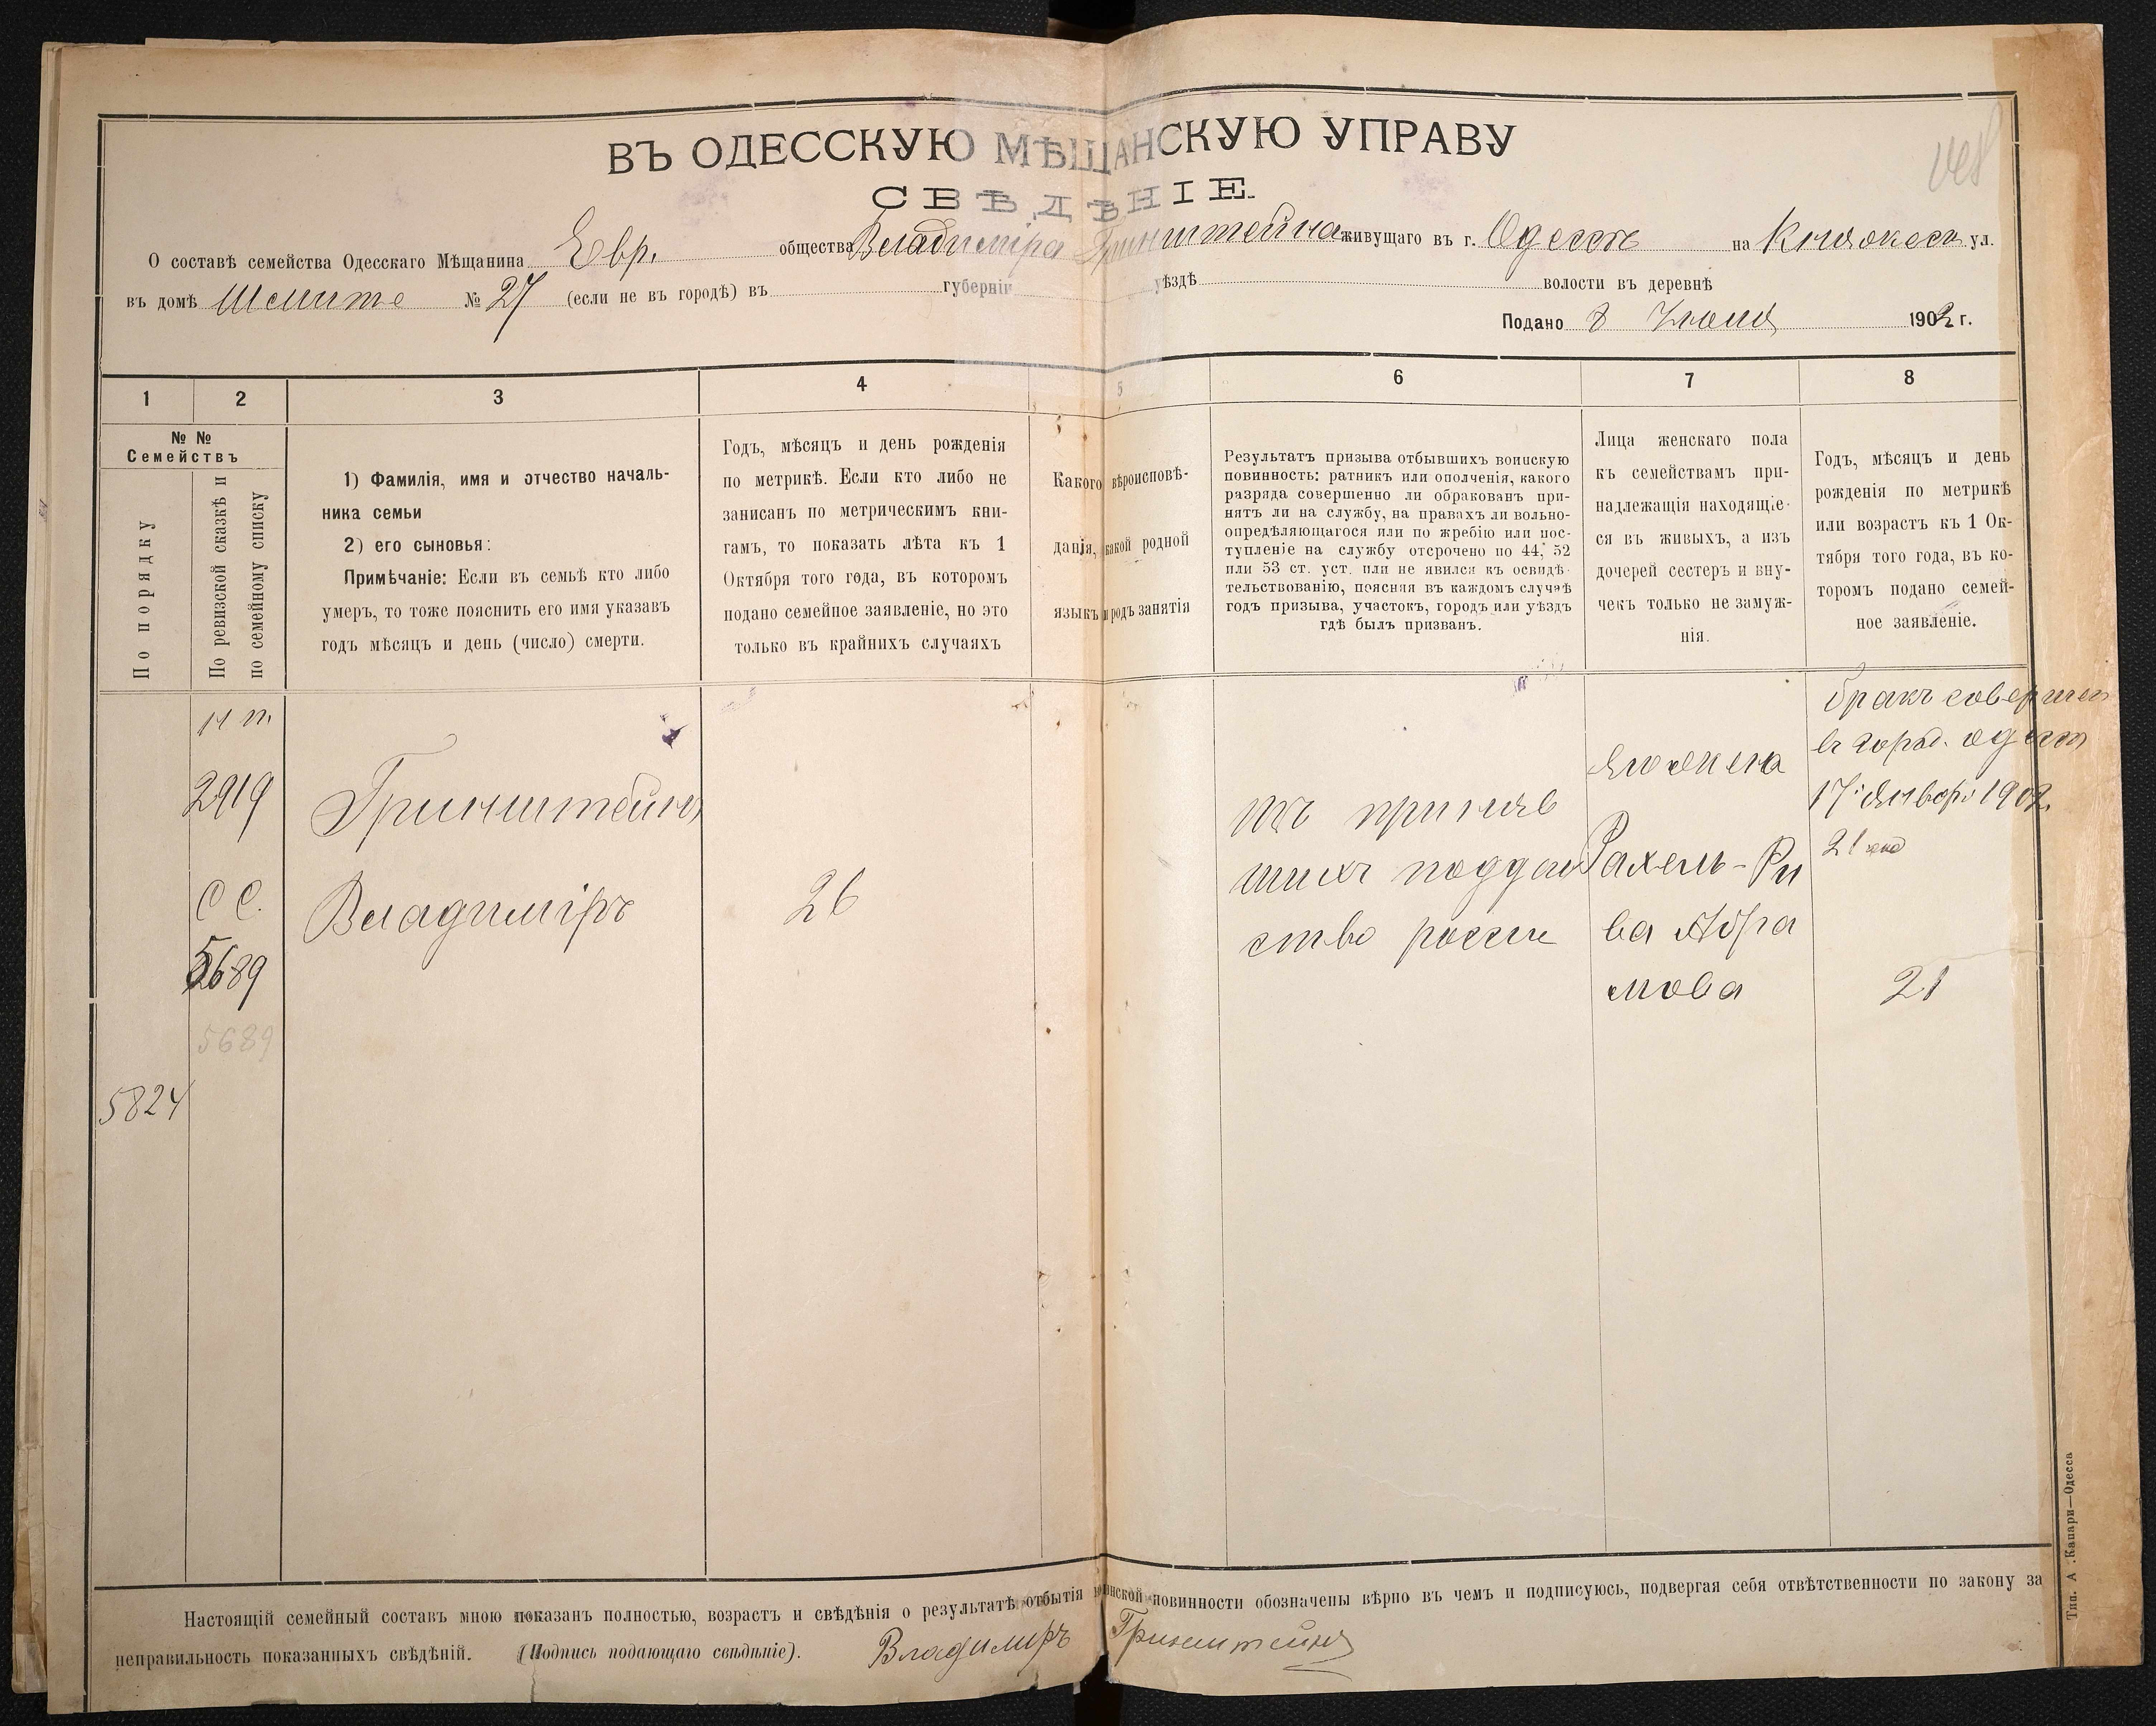 ВЪ ОДЕССКУЮ МѢЩАНСКУЮ УПРАВУ
СВѢДѢНІЕ.
О составѣ семейства Одесскаго Мѣщанина Евр. общества Владиміра Гринштейна живущаго въ г. Одессѣ на ул.
въ домѣ № 27 (если не въ городѣ) въ губерніи уѣздѣ волости въ деревнѣ
Подано 8 1902 г.
1 2 3 4 5 6 7 8
№ №
Семействъ
По порядку
По ревизской сказкѣ и
по семейному списку
1) Фамилія, имя и отчество началь-
ника семьи
2) его сыновья:
Примѣчаніе: Если въ семьѣ кто либо
умеръ, то тоже пояснить его имя указавъ
годъ мѣсяцъ и день (число) смерти.
Годъ, мѣсяцъ и день рожденія
по метрикѣ. Если кто либо не
записанъ по метрическимъ кни-
гамъ, то показать лѣта къ 1
Октября того года, въ которомъ
подано семейное заявленіе, но это
только въ крайнихъ случаяхъ
Какого вѣроисповѣ-
данія, какой родной
языкъ и родъ занятія
Результатъ призыва отбывшихъ воинскую
повинность: ратникъ или ополченія, какого
разряда совершенно ли обракованъ при-
нятъ ли на службу, на правахъ ли вольно-
опредѣляющагося или по жребію или пос-
тупленіе на службу отсрочено по 44, 52
или 53 ст. уст. или не явился къ освидѣ-
тельствованію, поясняя въ каждомъ случаѣ
годъ призыва, участокъ, городъ или уѣздъ
гдѣ былъ призванъ.
Лица женскаго пола
къ семействамъ при-
надлежащія находящіе-
ся въ живыхъ, а изъ
дочерей сестеръ и вну-
чекъ только не замуж-
нія.
Годъ, мѣсяцъ и день
рожденія по метрикѣ
или возрастъ къ 1 Ок-
тября того года, въ ко-
торомъ подано семей-
ное заявленіе.
2919
С С.
5689
5689
5824
Гринштейнъ
Владиміръ
26
изъ приняв
шихъ поддан
ство россіи
его жена
Рахель-Ри
ва Абра
мова
бракъ совершен
въ город. Одессѣ
17 Января 1902
21
21
Настоящій семейный составъ мною показанъ полностью, возрастъ и свѣдѣнія о результатѣ отбытія воинской повинности обозначены вѣрно въ чемъ и подписуюсь, подвергая себя отвѣтственности по закону за
неправильность показанныхъ свѣдѣній. (Подпись подающаго свѣдѣніе). Владимиръ Гринштейнъ
Тип. А. Капари—Одесса